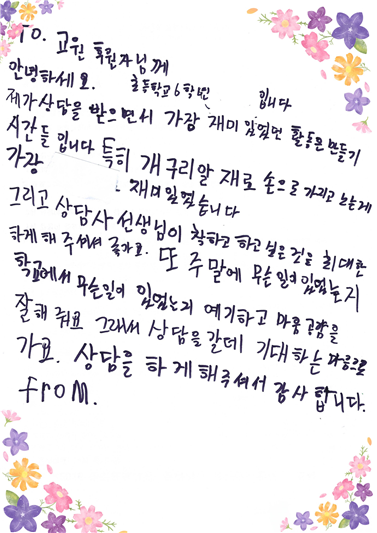 To. 고원 후원자님께
안녕하세요. 초등학교 6학년 입니다
제가 상담을 받으면서 가장 재미있었던 활동은 만들기
시간들 입니다 특히 개구리알 재료 손으로 가지고 노는게
가장 재미있었습니다
그리고 상담사 선생님이 착하고 하고 싶은 것을 최대한
하게 해 주셔서 좋아요. 또 주말에 무슨 일이 있었는지
학교에서 무슨일이 있었는지 얘기하고 마음 공감을
잘해 줘요 그래서 상담을 갈데 기대하는 마음으로
가요. 상담을 하게해주셔서 감사 합니다.
from.